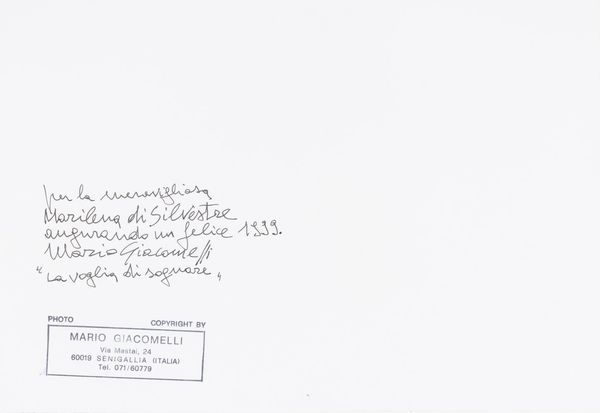 per la meravigliosa
Marilena di Silvestre
augurando un felice 1999.
Mario Giacomelli
"La voglia di sognare"
PHOTO COPYRIGHT BY
MARIO GIACOMELLI
Via Mastai, 24
60019 SENIGALLIA (ITALIA)
Tel. 071/60779